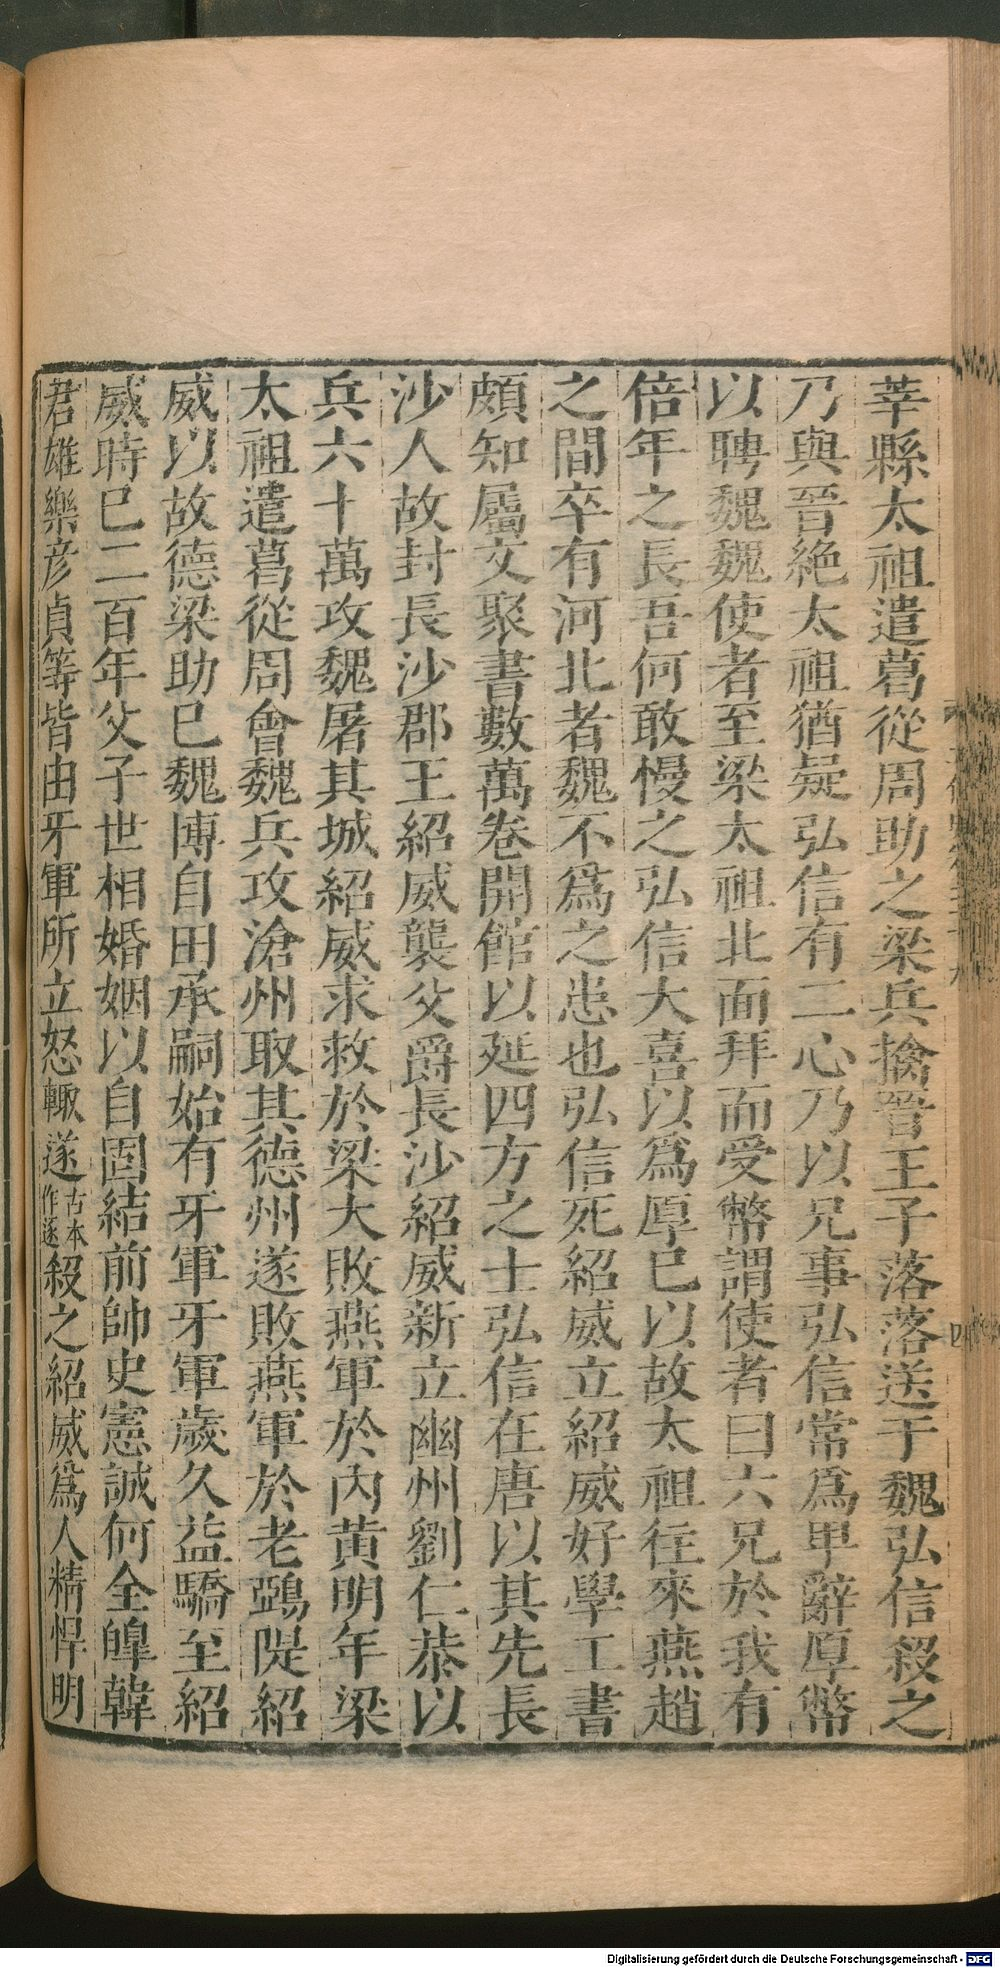 莘縣太祖遣葛從周助之梁兵擒晉王子落落送于魏弘信殺之
乃與晉絶太祖猶疑弘信有二心乃以兄事弘信常爲卑辭厚幣
以聘魏魏使者至梁太祖北面拜而受幣謂使者曰六兄於我有
倍年之長吾何敢慢之弘信大喜以爲厚已以故太祖往來燕趙
之間卒有河北者魏不爲之患也弘信死紹威立紹威好學工書
頗知屬文聚書數萬卷開館以延四方之士弘信在唐以其先長
沙人故封長沙郡王紹威襲父爵長沙紹威新立幽州劉仁恭以
兵六十萬攻魏屠其城紹威求救於梁大敗燕軍於內黃明年梁
太祖遣葛從周會魏兵攻滄州取其德州遂敗燕軍於老鵶隄紹
威以故德梁助已魏博自田承嗣始有牙軍牙軍歲久益驕至紹
威時已二百年父子世相婚姻以自固結前帥史憲誠何全皥韓
君雄樂彦貞等皆由牙軍所立怒輙遂古本作逐殺之紹威爲人精悍明
四
Digitalisierung gefördert durch die Deutsche Forschungsgemeinschaft - DFG